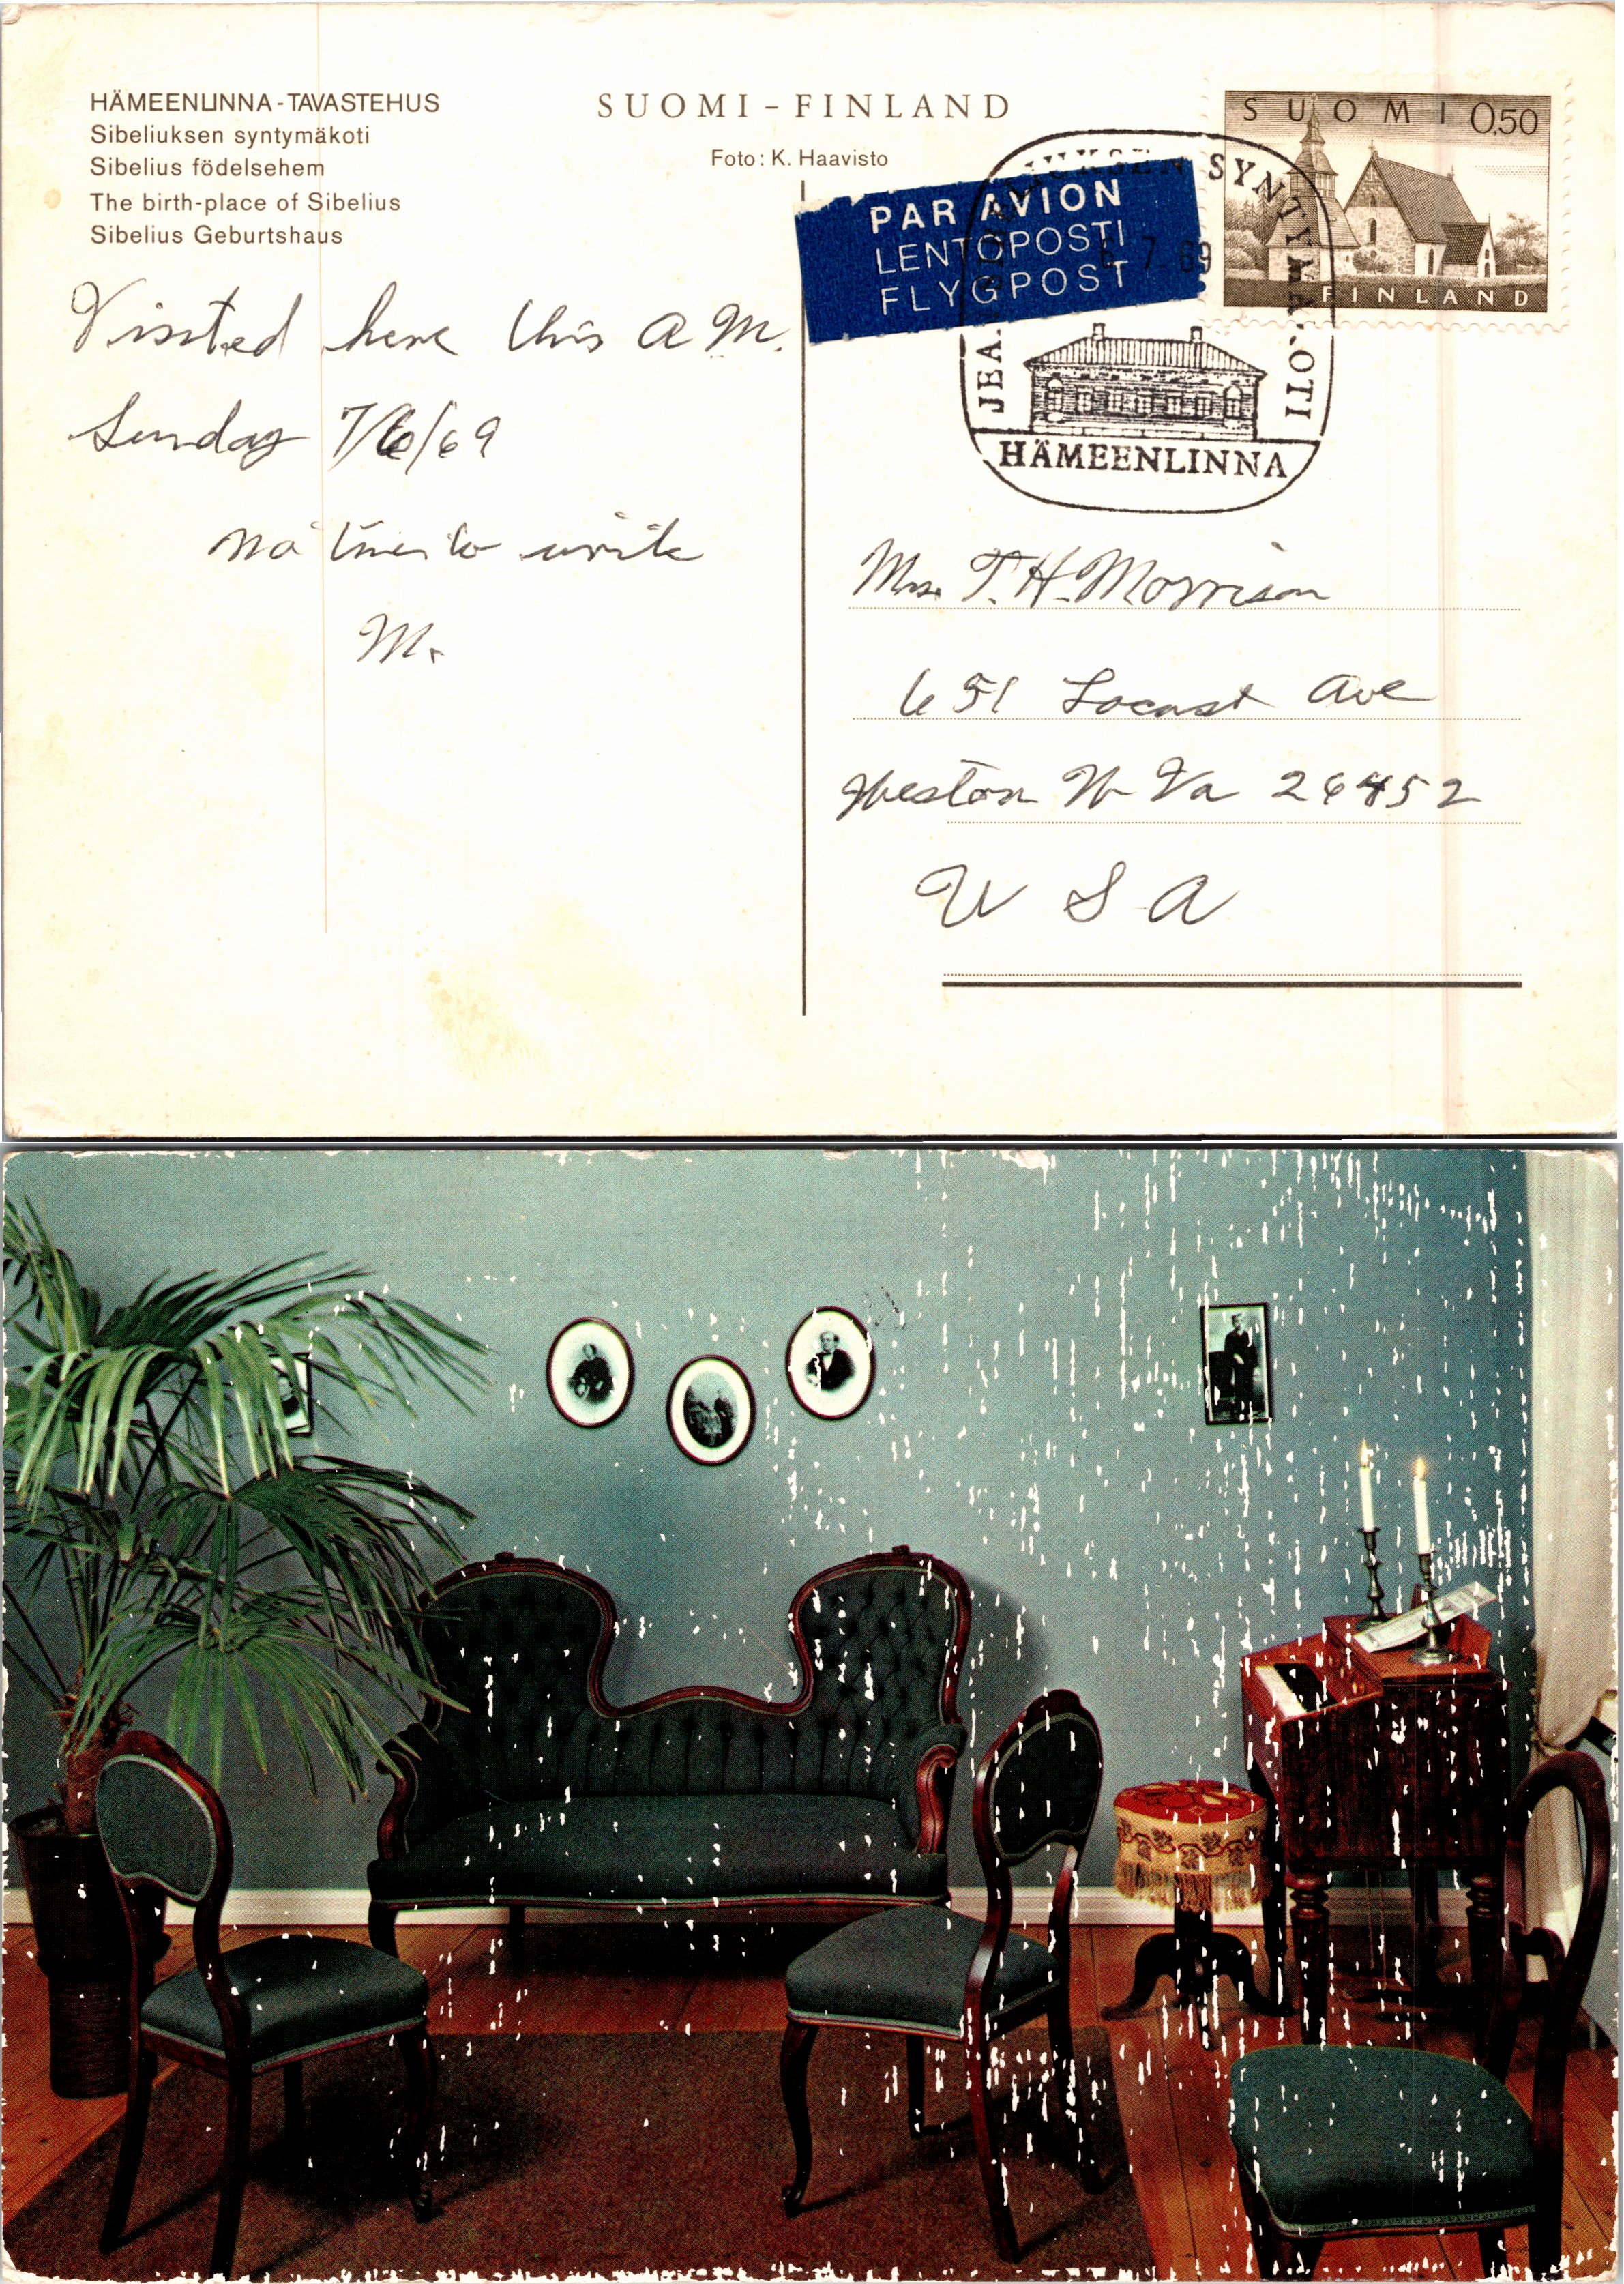 HÄMEENLINNA - TAVASTEHUS
Sibeliuksen syntymäkoti
Sibelius födelsehem
The birth-place of Sibelius
Sibelius Geburtshaus
SUOMI - FINLAND
Foto: K. Haavisto
SUOMI 0,50
FINLAND
PAR AVION
LENTOPOSTI
FLYGPOST
6. 7. 69
SYNTYMÄKOTI
HÄMEENLINNA
Visited here this A M.
Sunday 7/6/69
no time to write
M.
Mrs. T. H. Morrison
651 Locust Ave
Weston W Va 26452
U S A